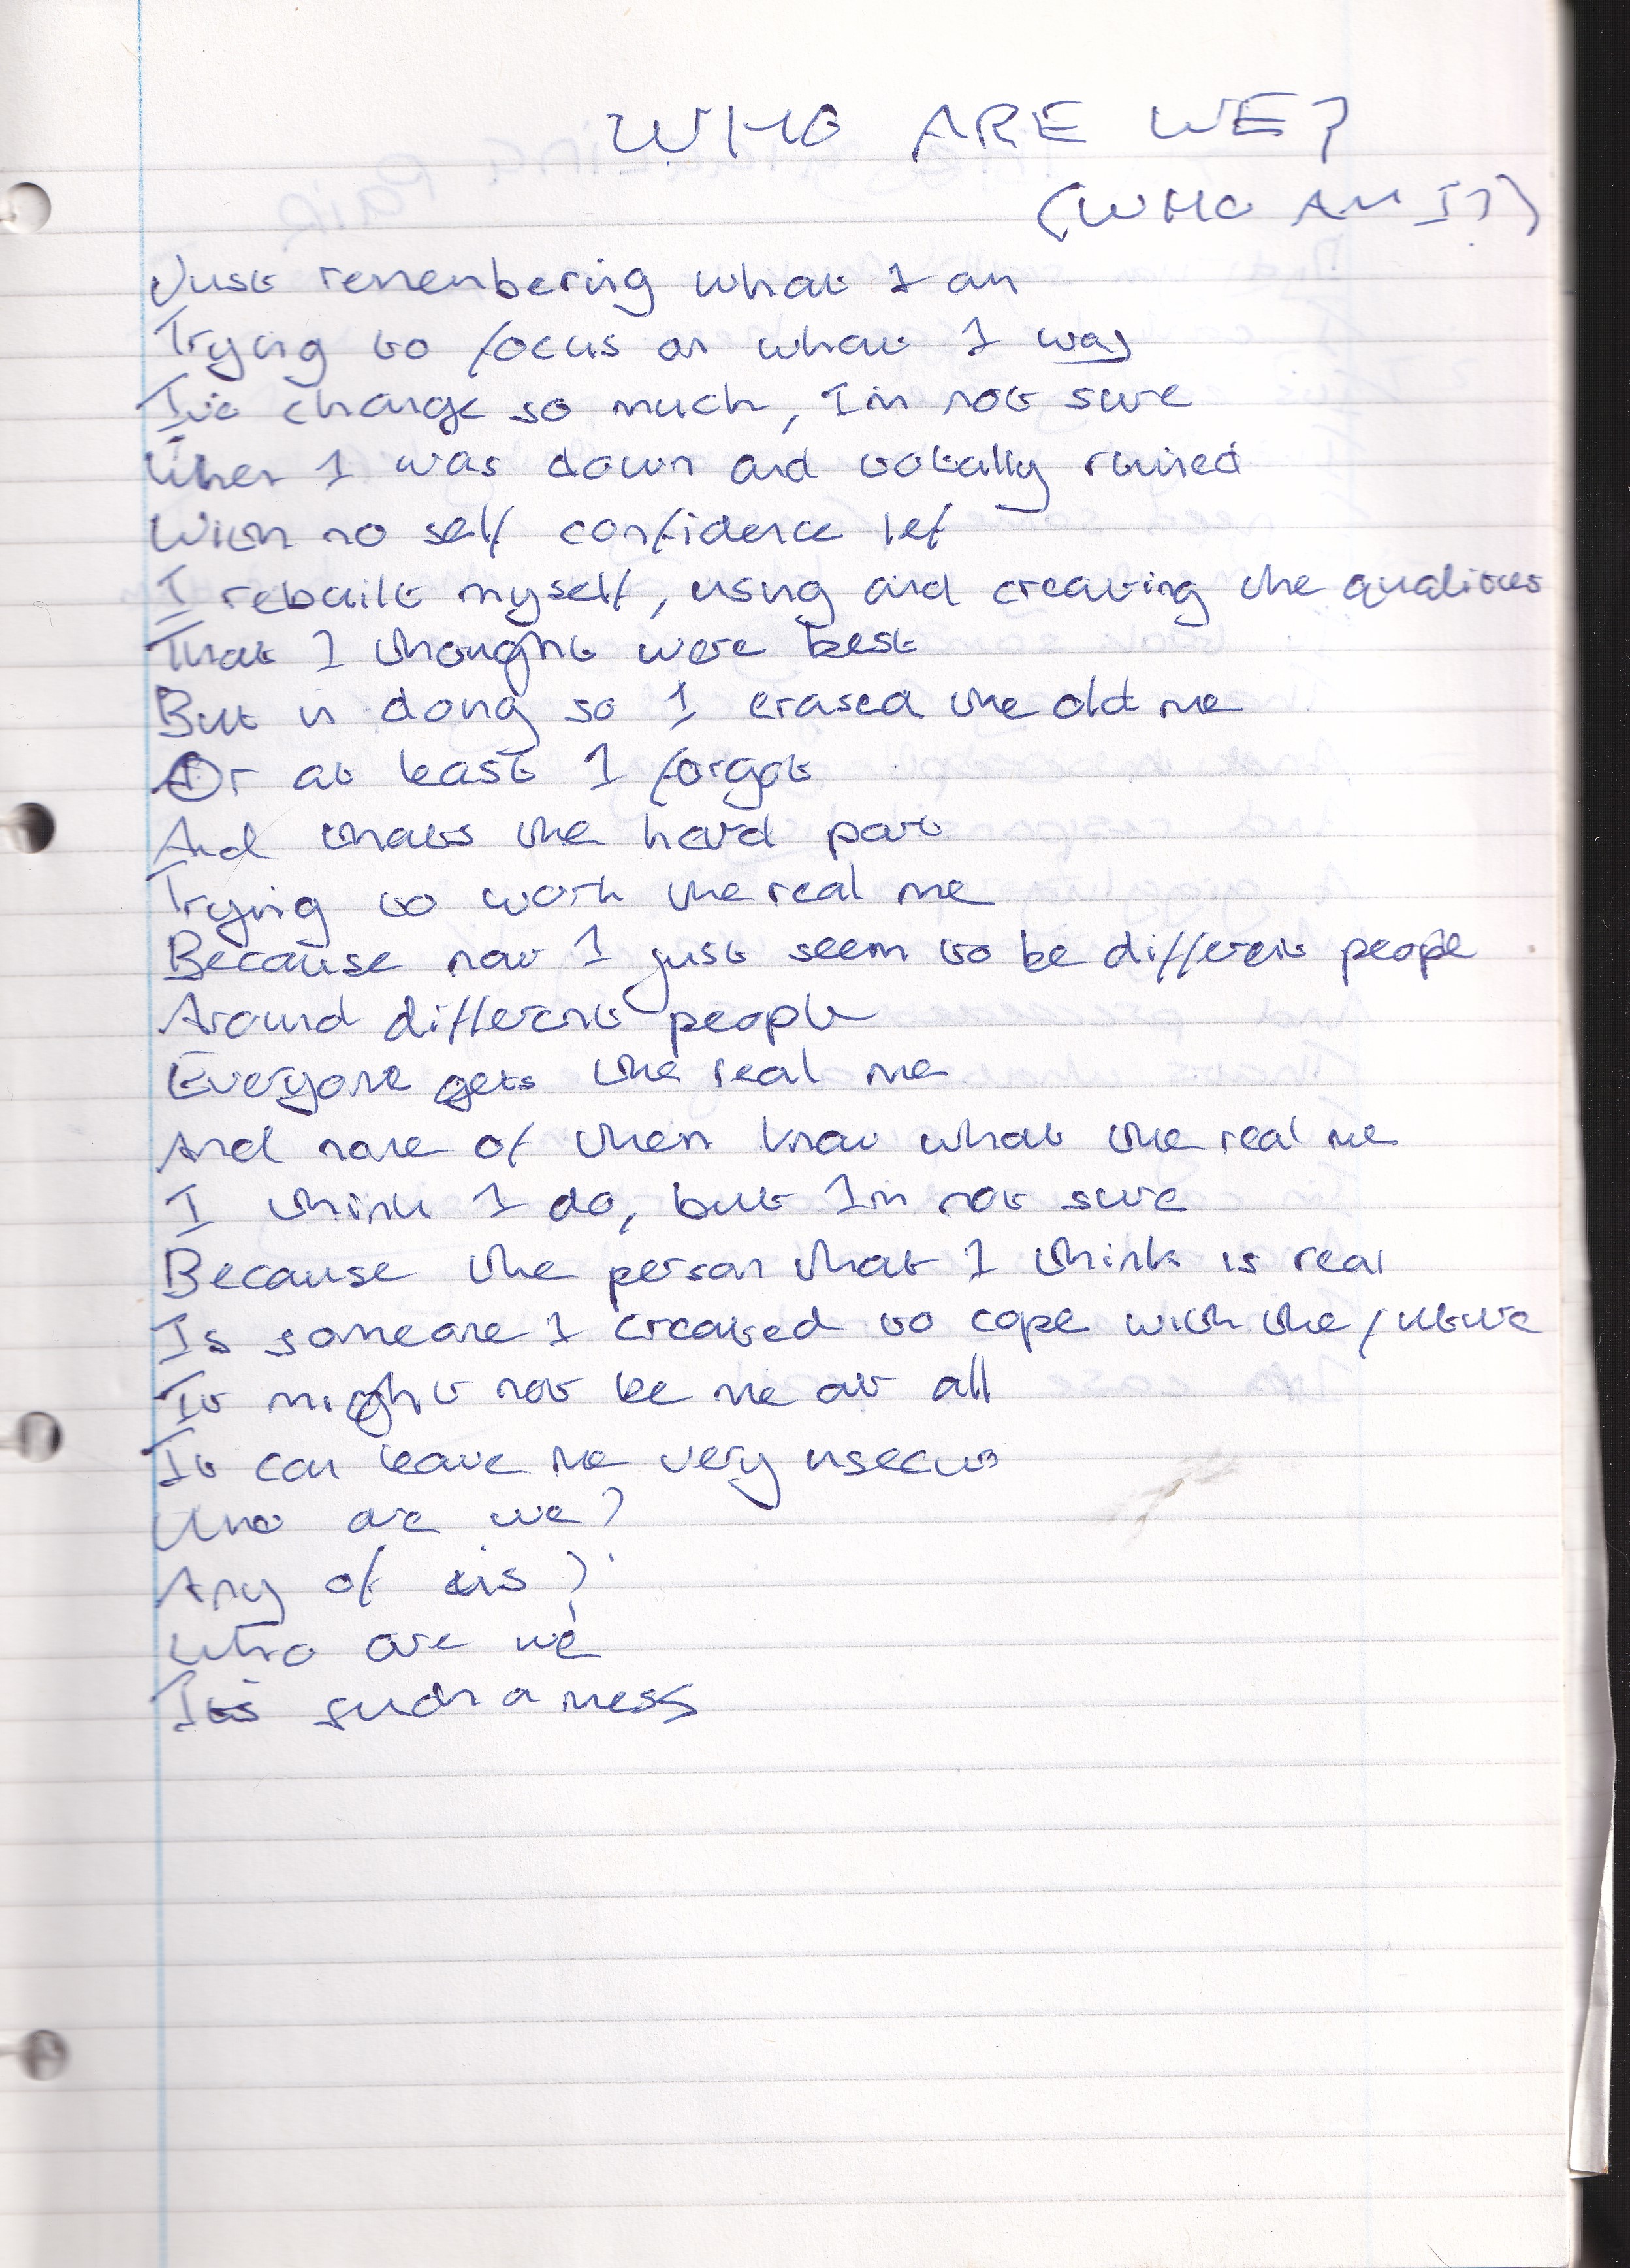 WHO ARE WE?
(WHO AM I?)
Just remembering what I am
Trying to focus on what I was
Ive change so much, Im not sure
When I was down and totally ruined
With no self confidence lef
I rebuilt myself, using and creating the qualities
That I thought were best
But in doing so I erased the old me
Or at least I forgot
And thats the hard part
Trying to work the real me
Because now I just seem to be different people
Around different people
Everyone gets the real me
And none of them know what the real me
I think I do, but Im not sure
Because the person that I think is real
Is someone I created to cope with the future
It might not be me at all
It can leave me very unsecure
Who are we?
Any of us?
Who are we
Its such a mess